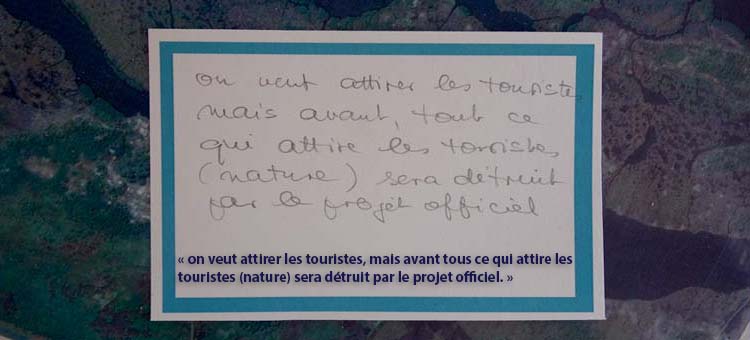 on veut attirer les touristes
mais avant, tout ce
qui attire les touristes
(nature) sera détruit
par le projet officiel
« on veut attirer les touristes, mais avant tous ce qui attire les
touristes (nature) sera détruit par le projet officiel. »